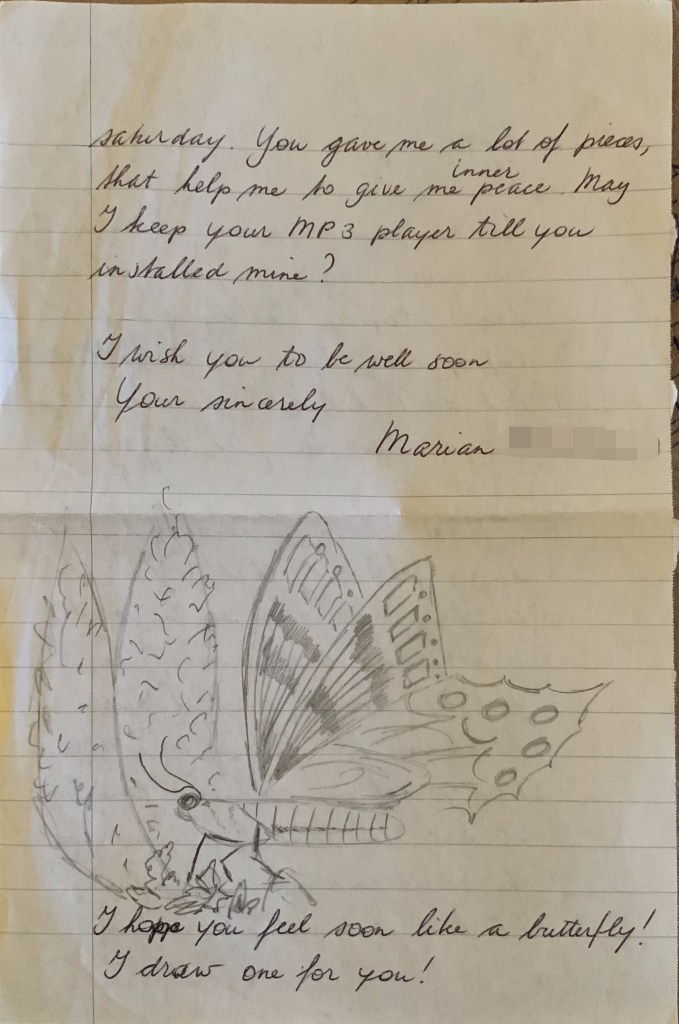 saturday. You gave me a lot of pieces,
that help me to give me inner peace. May
I keep your MP3 player till you
installed mine?
I wish you to be well soon
Your sincerely
Marian
I hope you feel soon like a butterfly!
I draw one for you!